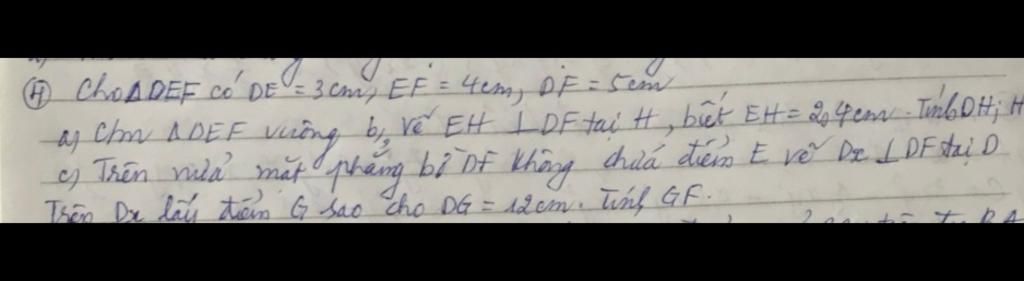 ④ Cho ΔDEF có DE = 3cm, EF = 4cm, DF = 5cm
a, C/m ΔDEF vuông b, Vẽ EH ⊥ DF tại H, biết EH = 2,4cm. Tính DH; H
c, Trên nửa mặt phẳng bờ DF không chứa điểm E vẽ Dx ⊥ DF tại D
Trên Dx lấy điểm G sao cho DG = 12cm. Tính GF.